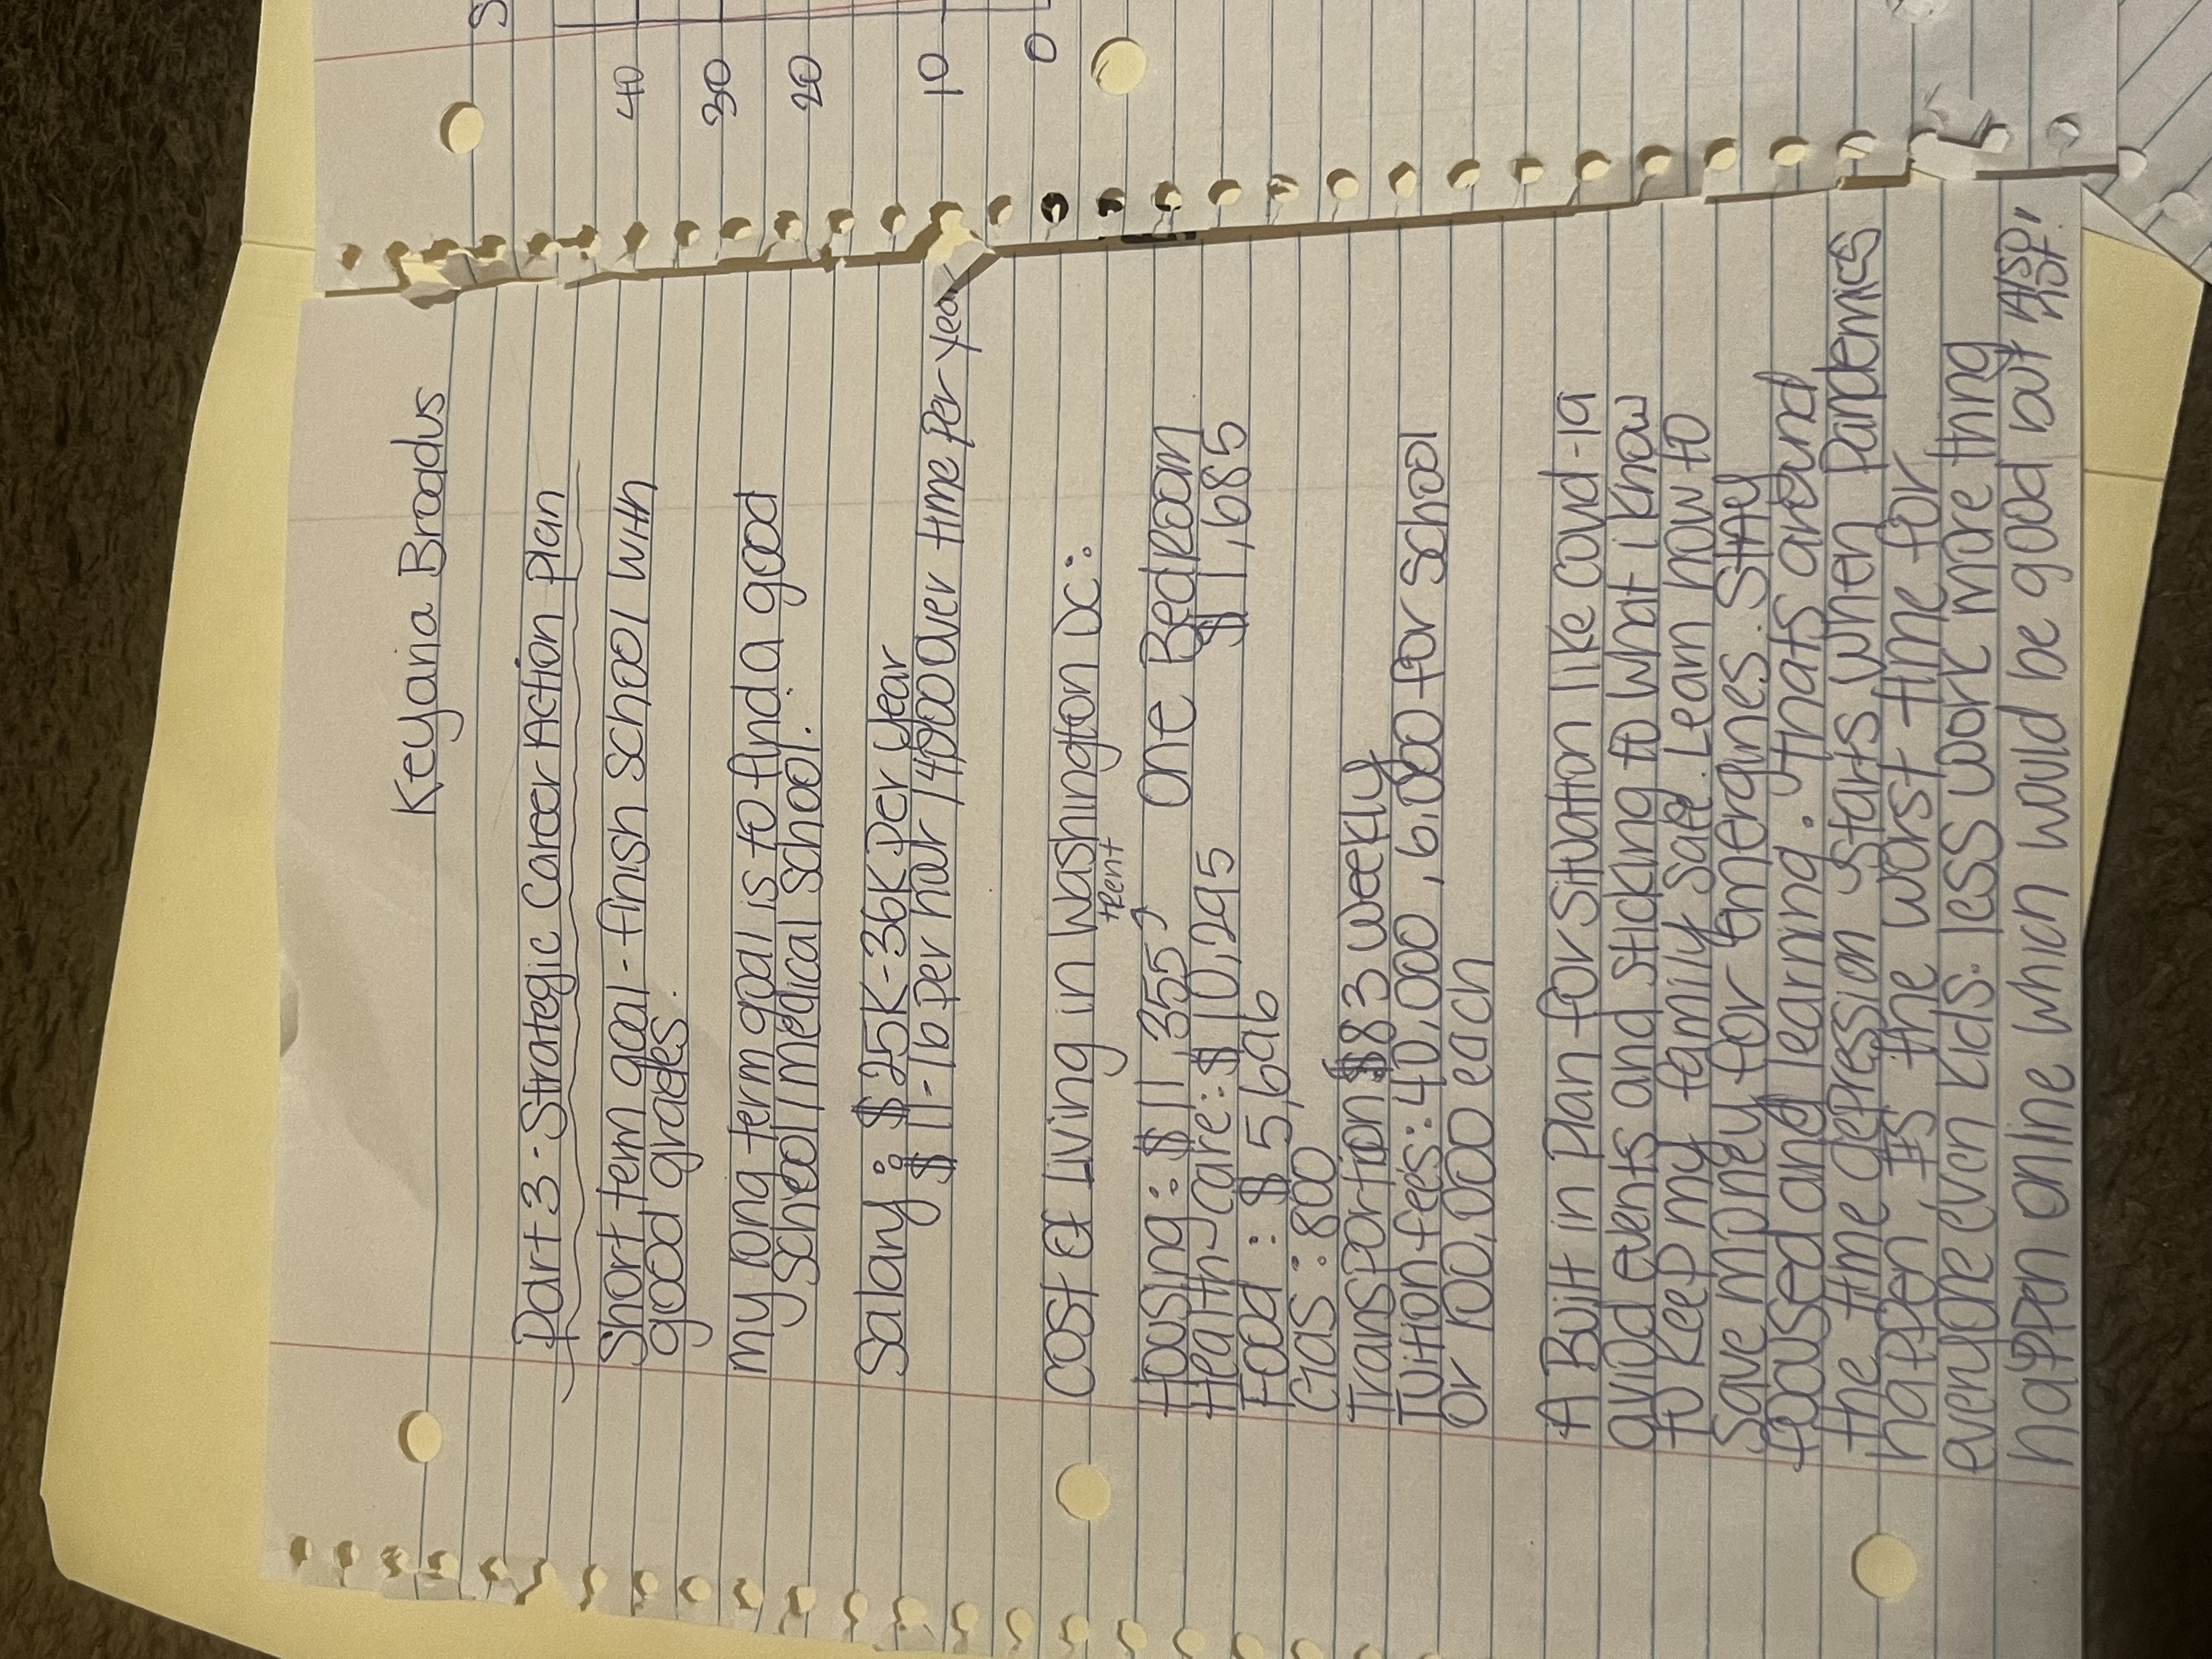 Keyaria Broadus
Part 3 - Strategic Career Action Plan
Short term goal - finish school with
good grades.
my long term goal is to find a good
school / medical school.
Salary: $25K-36K per year
$11-16 per hour 14000 over time per year
Cost of Living in Washington DC:
rent
Housing: $11,355 One Bedroom
Health-care: $10,295 $11,685
Food: $5,696
Gas: 800
Transportion $83 weekly
Tuition fees: 40,000, 6,000 for school
or 100,000 each
A Built in Plan for situation like covid-19
aviod events and sticking to what i know
to keep my family safe. Learn how to
save mopney for emergines. Stay
focused and learning. Thats around
the time depression starts when Pandemics
happen, its the worst time for
everyone even kids. less work more thing
happen online which would be good but also
not.
S
40
30
20
10
0